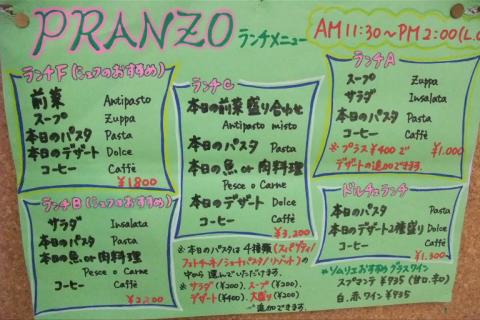 PRANZO ランチメニュー
AM11:30～PM2:00(L.O
ランチF(シェフのおすすめ)
前菜 Antipasto
スープ Zuppa
本日のパスタ Pasta
本日のデザート Dolce
コーヒー Caffè
¥1800
ランチB(シェフのおすすめ)
サラダ Insalata
本日のパスタ Pasta
本日の魚or肉料理
Pesce o Carne
コーヒー Caffè
¥2,200
ランチC
本日の前菜盛り合わせ
Antipasto misto
本日のパスタ Pasta
本日の魚or肉料理
Pesce o Carne
本日のデザート Dolce
コーヒー Caffè
¥3,200
※本日のパスタは4種類(スパゲティ/
フェトチーネ/ショートパスタ/リゾット)の
中から選んでいただけます。
※サラダ(¥200)、スープ(¥200)
デザート(¥400)、大盛り(¥200)
追加できます。
ランチA
スープ Zuppa
サラダ Insalata
本日のパスタ Pasta
コーヒー Caffè
※プラス¥400で
デザートの追加できます。
¥1,000
ドルチェランチ
本日のパスタ Pasta
本日のデザート2種盛り Dolce
コーヒー Caffè
¥1,300
※ソムリエおすすめグラスワイン
スプマンテ ¥935(甘口、辛口)
白、赤ワイン ¥935